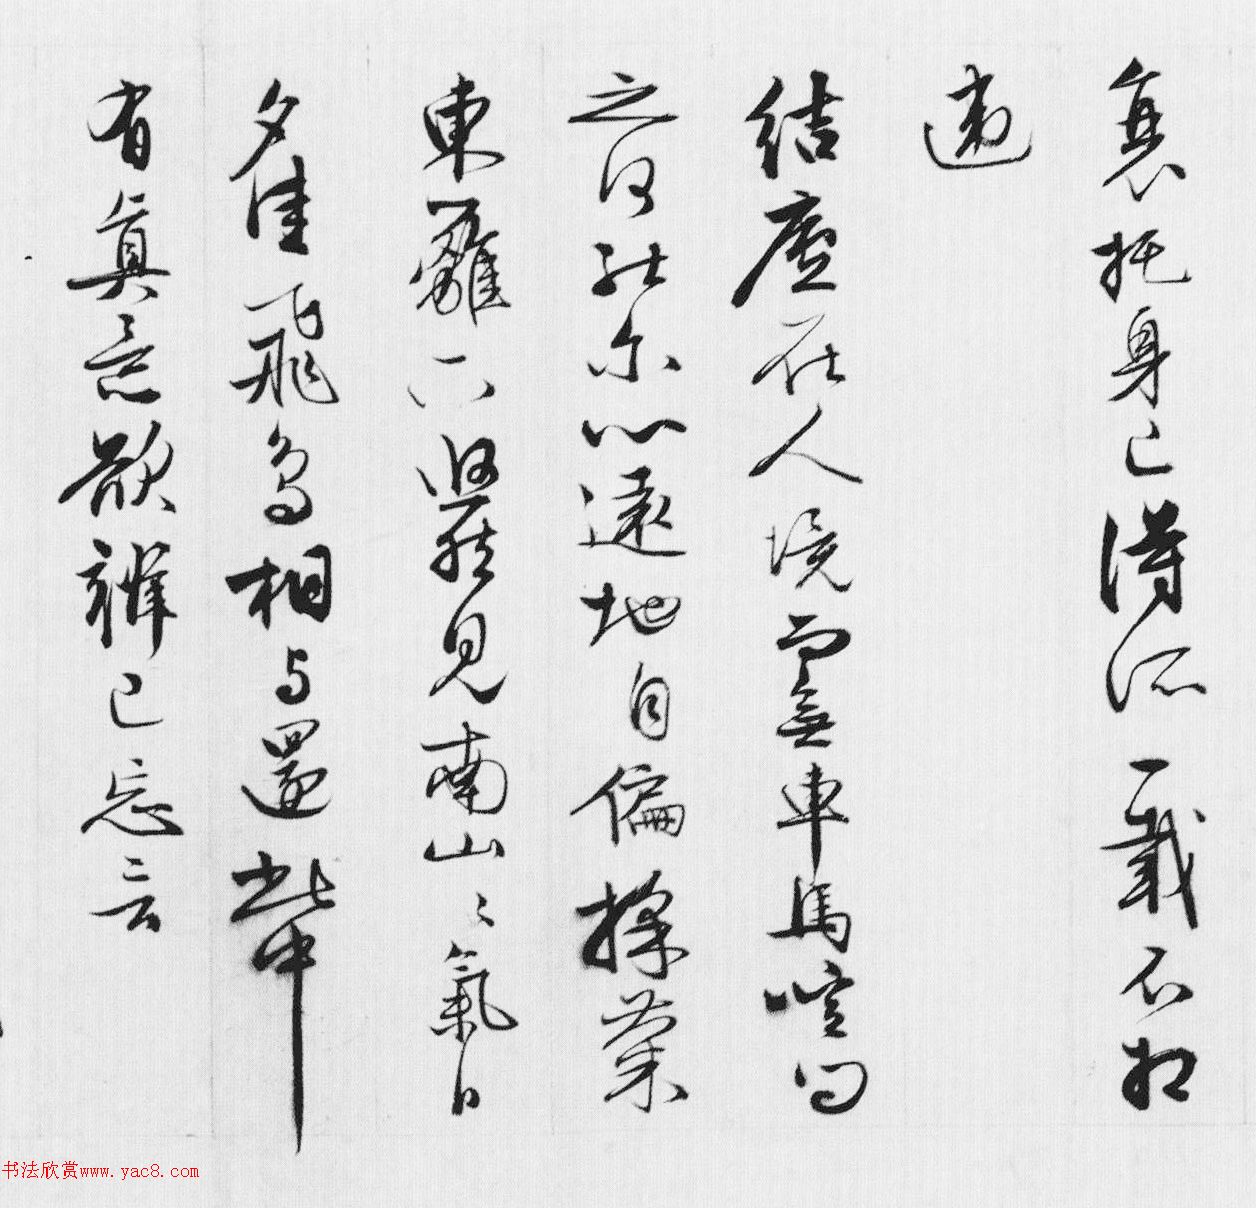 衰托身已得所千載不相
違
結廬在人境而無車馬喧問
之何能尔心遠地自偏採菊
東籬下悠然見南山〻氣日
夕佳飛鳥相与還此中
有眞意欲辨已忘言
书法欣赏www.yac8.com